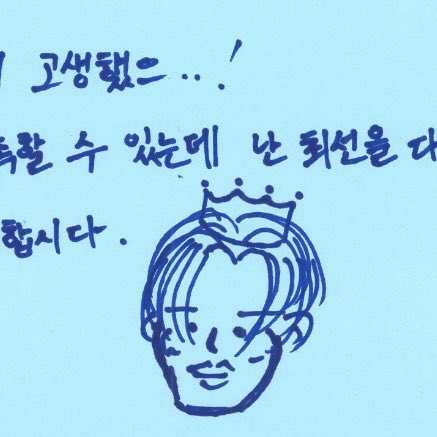 고생했으..!
할 수 있는데 난 최선을 다
합시다.